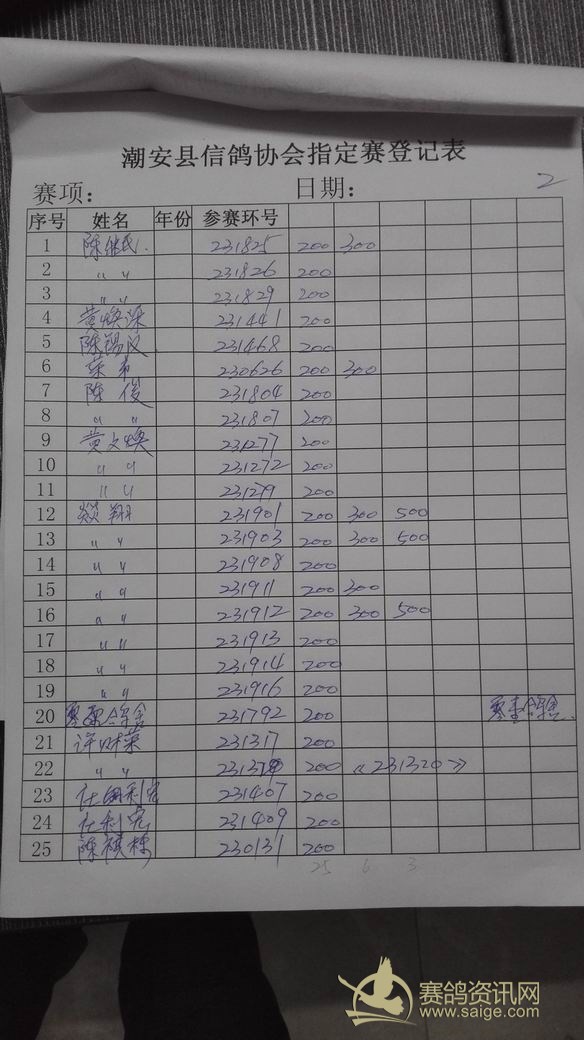 潮安县信鸽协会指定赛登记表
赛项: 日期: 2
序号 姓名 年份 参赛环号
1 陈继民. 231825 200 300
2 〃 〃 231826 200
3 〃 〃 231829 200
4 黄焕深 231441 200
5 陈锡义 231468 200
6 荣弟 230626 200 300
7 陈俊 231804 200
8 〃 〃 231807 200
9 黄文焕 231277 200
10 〃 〃 231272 200
11 〃 〃 231279 200
12 燚翔 231901 200 300 500
13 〃 〃 231903 200 300 500
14 〃 〃 231908 200
15 〃 〃 231911 200 300
16 〃 〃 231912 200 300 500
17 〃 〃 231913 200
18 〃 〃 231914 200
19 〃 〃 231916 200
20 231792 200
21 许财荣 231317 200
22 〃 〃 200 《231320》
23 231407 200
24 仕利宪 231409 200
25 陈横栋 230131 200
25 6 3
赛鸽资讯网
www.saige.com